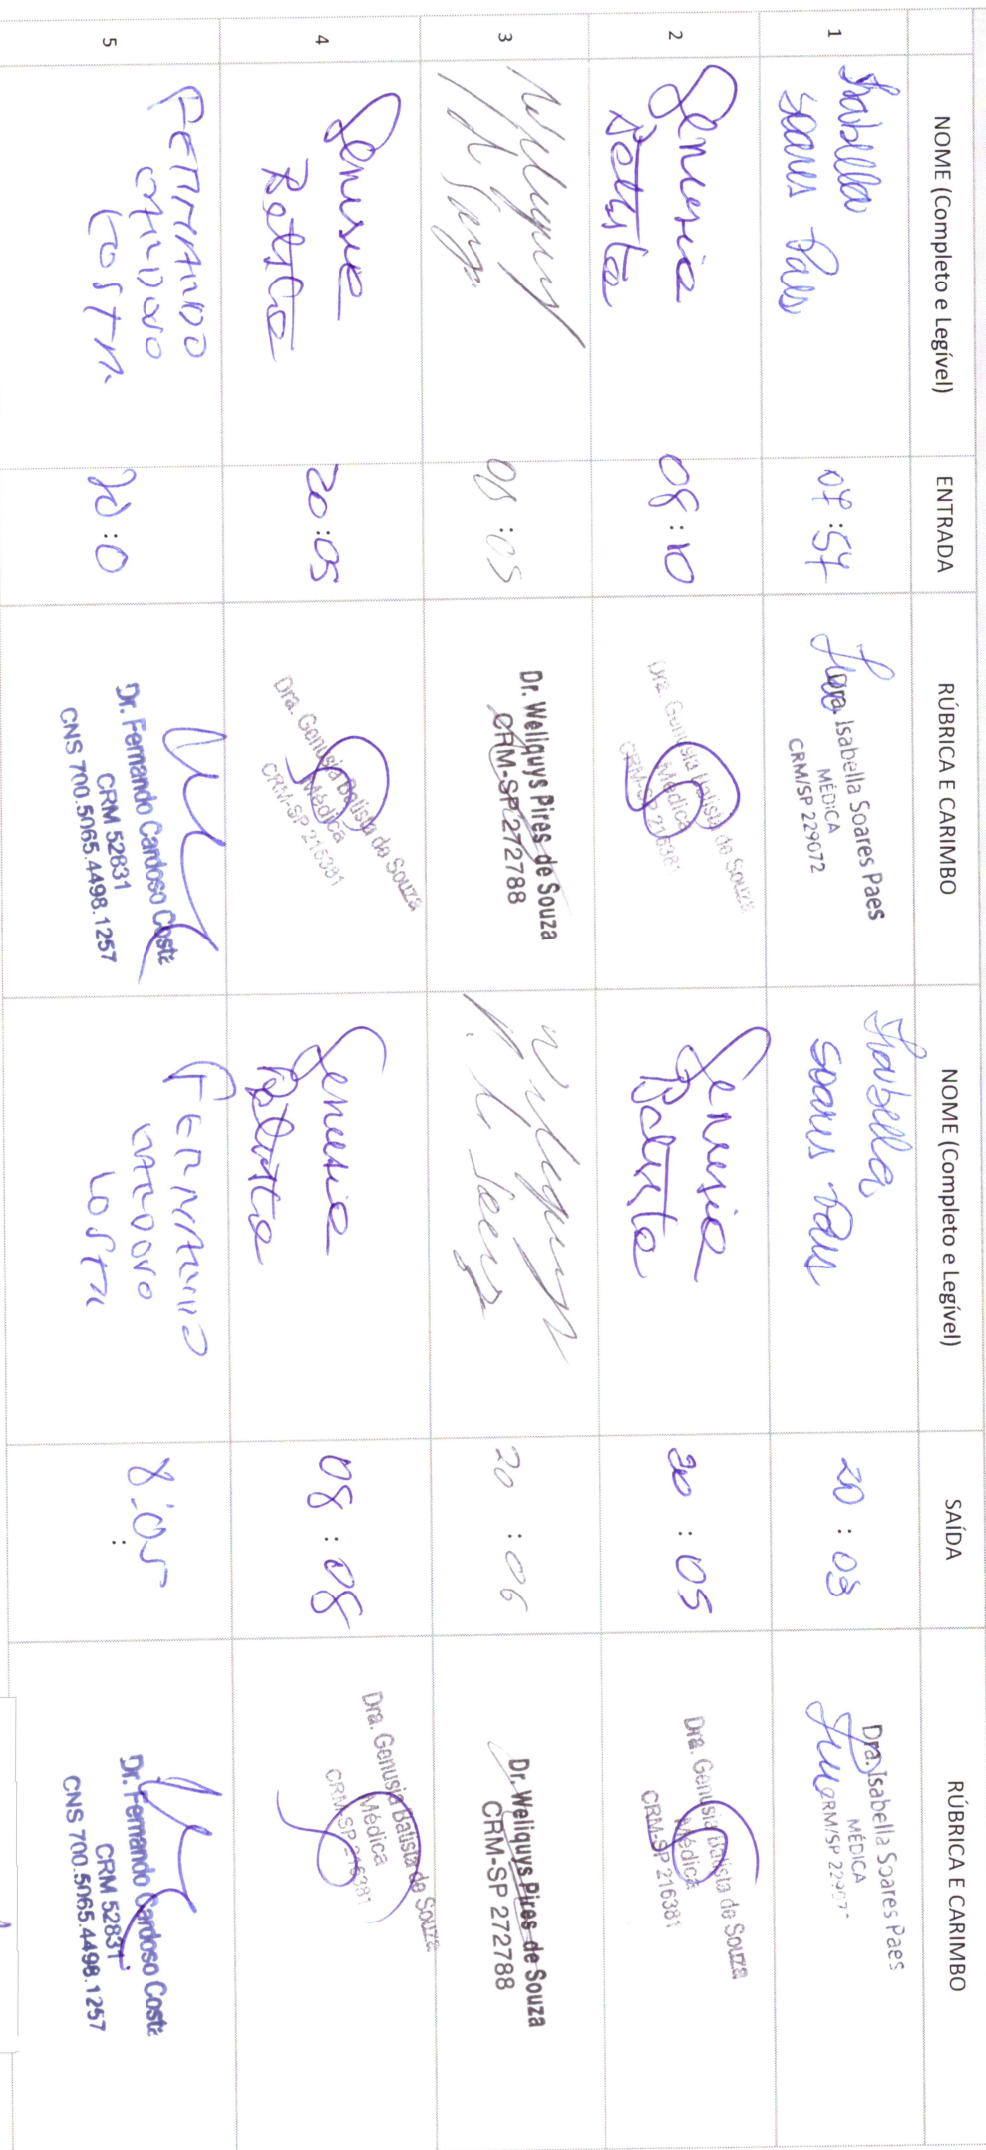 NOME (Completo e Legível) ENTRADA RÚBRICA E CARIMBO NOME (Completo e Legível) SAÍDA RÚBRICA E CARIMBO
1
Isabella
Soares Paes
07:57
Dra. Isabella Soares Paes
MÉDICA
CRM/SP 229072
Isabella
Soares Paes
20:08
Dra. Isabella Soares Paes
MÉDICA
CRM/SP
2
Genusia
Batista
08:10
Dra. Genusia Batista de Souza
Médica
CRM-SP 216381
Genusia
Batista
20:05
Dra. Genusia Batista de Souza
Médica
CRM-SP 216381
3
Weliquys
P. de Souza
08:05
Dr. Weliquys Pires de Souza
CRM-SP 272788
Weliquys
P. de Souza
20:06
Dr. Weliquys Pires de Souza
CRM-SP 272788
4
Genusia
Batista
20:05
Dra. Genusia Batista de Souza
Médica
CRM-SP 216381
Genusia
Batista
08:08
Dra. Genusia Batista de Souza
Médica
CRM-SP 216381
5
FERNANDO
CARDOSO
COSTA
20:0
Dr. Fernando Cardoso Costa
CRM 52831
CNS 700.5065.4498.1257
FERNANDO
CARDOSO
COSTA
8:05
Dr. Fernando Cardoso Costa
CRM 52831
CNS 700.5065.4498.1257